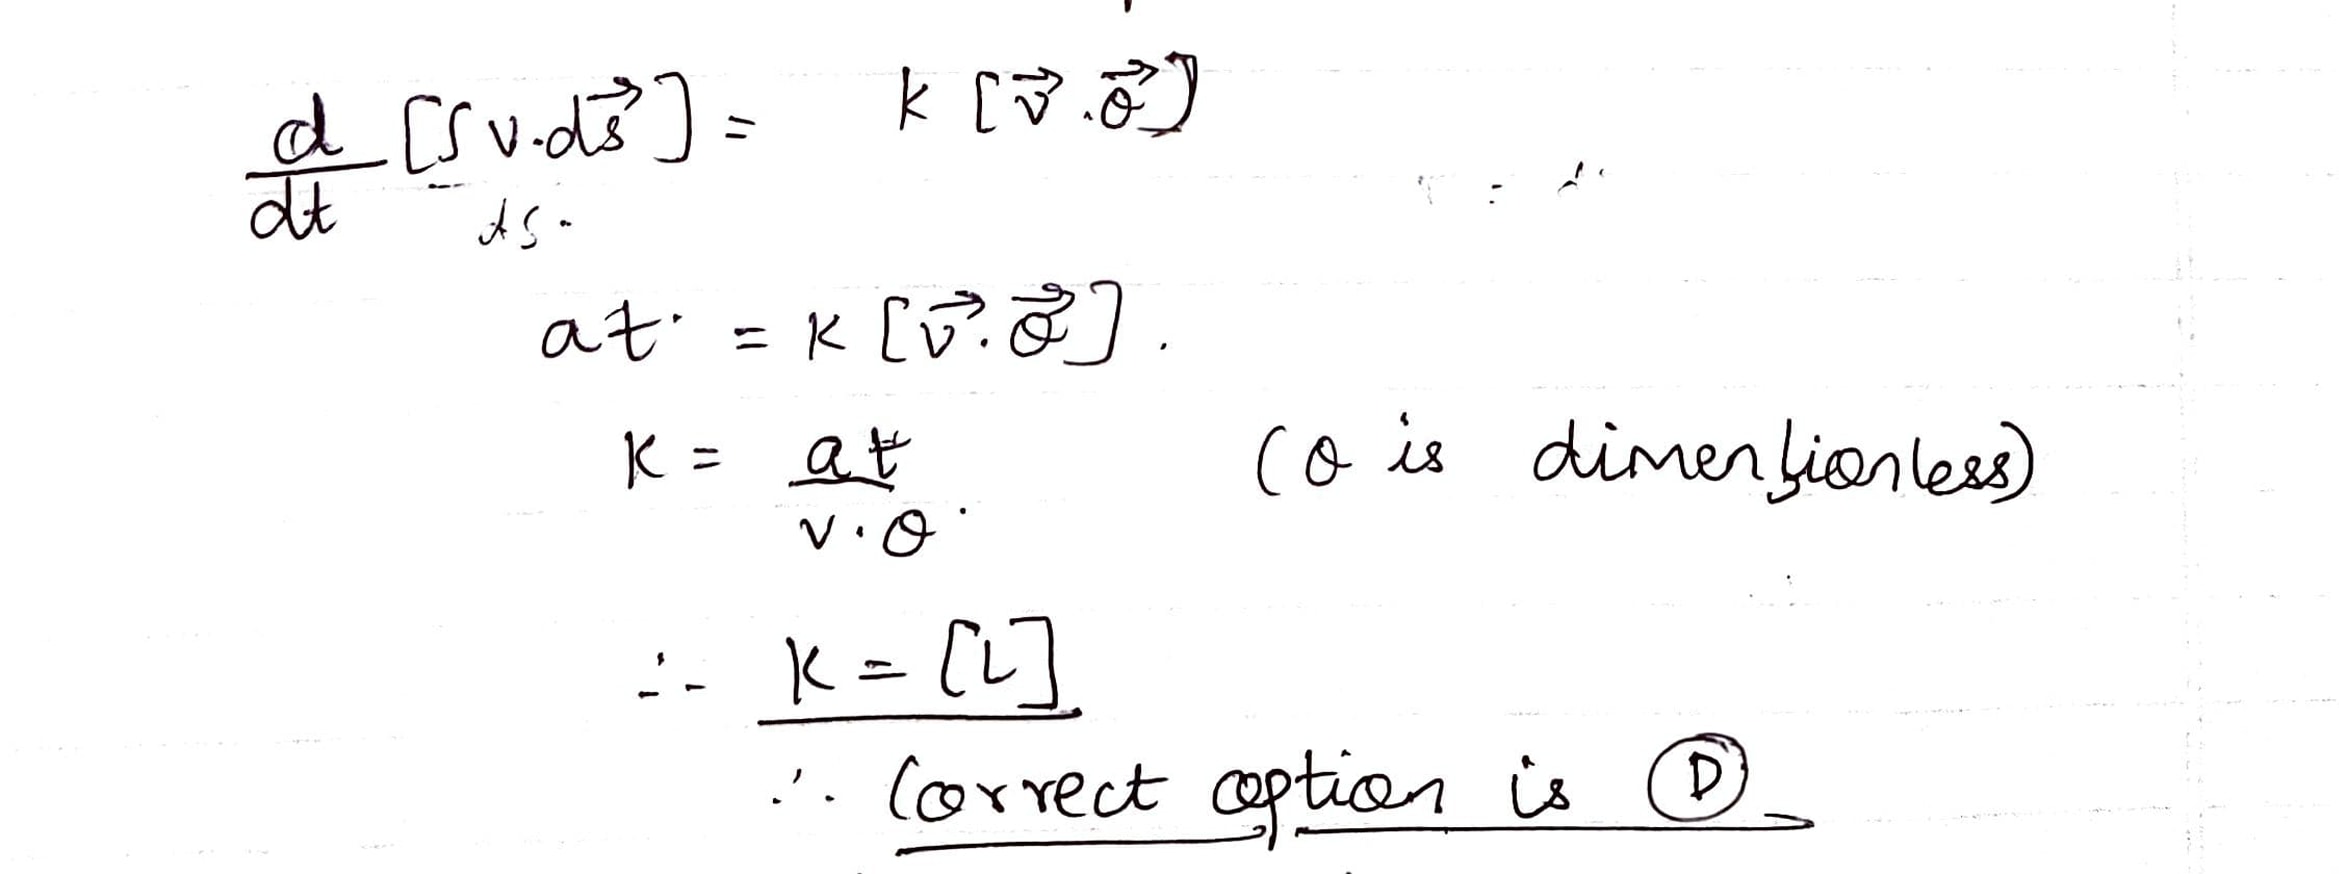 d/dt [∫ v.ds⃗ ] = k [v⃗ .θ⃗]
ds.
at = k [v⃗.θ⃗].
K = at / v.θ. (θ is dimensionless)
∴ K = [L]
∴ Correct option is D